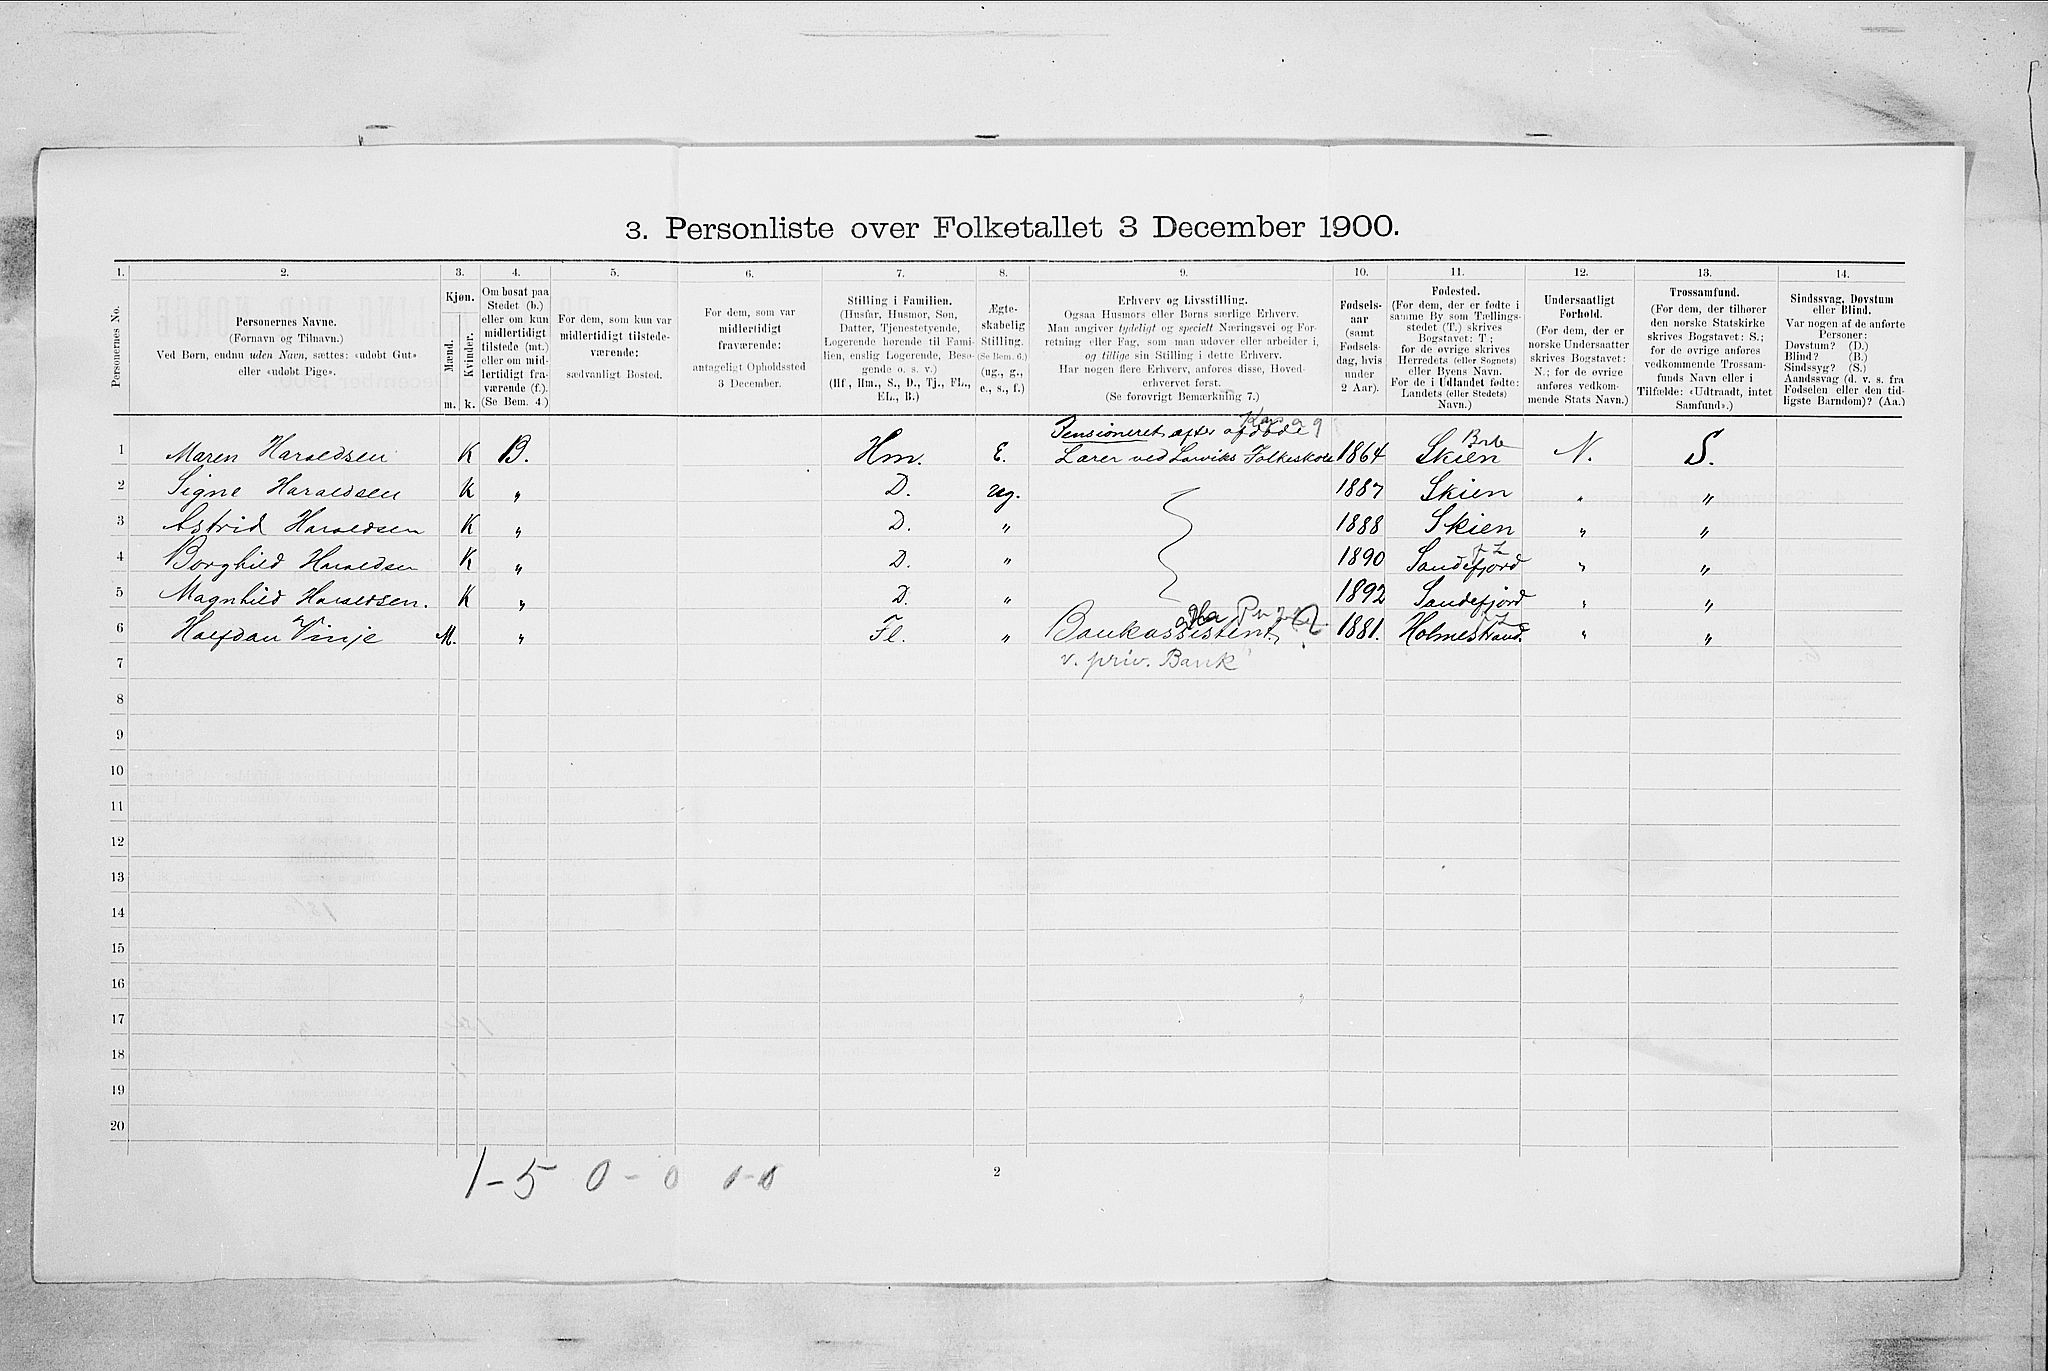 3. Personliste over Folketallet 3 December 1900.
1. 2. 3. 4. 5. 6. 7. 8. 9. 10. 11. 12. 13. 14.
Personernes No.
Personernes Navne.
(Fornavn og Tilnavn.)
Ved Børn, endnu uden Navn, sættes: «udøbt Gut»
eller «udøbt Pige».
Kjøn.
Mænd.
Kvinder.
m. k.
Om bosat paa
Stedet (b.)
eller om kun
midlertidigt
tilstede (mt.)
eller om mid-
lertidigt fra-
værende (f.).
(Se Bem. 4.)
For dem, som kun var
midlertidigt tilstede-
værende:
sædvanligt Bosted.
For dem, som var
midlertidigt
fraværende:
antageligt Opholdssted
3 December.
Stilling i Familien.
(Husfar, Husmor, Søn,
Datter, Tjenestetyende,
Logerende hørende til Fami-
lien, enslig Logerende, Besø-
gende o. s. v.)
(Hf., Hm., S., D., Tj., FL.,
EL., B.)
Ægte-
skabelig
Stilling.
(Se Bem. 6.)
(ug., g.,
e., s., f.)
Erhverv og Livsstilling.
Ogsaa Husmors eller Børns særlige Erhverv.
Man angiver tydeligt og specielt Næringsvei og For-
retning eller Fag, som man udøver eller arbeider i,
og tillige sin Stilling i dette Erhverv.
Har nogen flere Erhverv, anføres disse, Hoved-
erhvervet først.
(Se forøvrigt Bemærkning 7.)
Fødsels-
aar
(samt
Fødsels-
dag, hvis
under
2 Aar).
Fødested.
(For dem, der er fødte i
samme By som Tællings-
stedet (T.) skrives
Bogstavet: T;
for de øvrige skrives
Herredets (eller Sognets)
eller Byens Navn.
For de i Udlandet fødte:
Landets (eller Stedets)
Navn.)
Undersaatligt
Forhold.
(For dem, der er
norske Undersaatter
skrives Bogstavet:
N.; for de øvrige
anføres vedkom-
mende Stats Navn.)
Trossamfund.
(For dem, der tilhører
den norske Statskirke
skrives Bogstavet: S.;
for de øvrige anføres
vedkommende Trossam-
funds Navn eller i
Tilfælde: «Udtraadt, intet
Samfund».)
Sindssvag, Døvstum
eller Blind.
Var nogen af de anførte
Personer:
Døvstum? (D.)
Blind? (B.)
Sindssyg? (S.)
Aandssvag (d. v. s. fra
Fødselen eller den tid-
ligste Barndom)? (Aa.)
Pensioneret efter afdøde
1 Maren Haraldsen K B. Hm. E. Lærer ved Larviks Folkeskole 1864 Skien N. S.
2 Signe Haraldsen K „ D. ug. 1887 Skien „ „
3 Astrid Haraldsen K „ D. „ 1888 Skien „ „
4 Borghild Haraldsen K „ D. „ 1890 Sandefjord „ „
5 Magnhild Haraldsen. K „ D. „ 1892 Sandefjord „ „
6 Halfdan Vinje M. „ Fl. „ Bankassistent 1881. Holmestrand. „ „
7 v. priv. Bank
8
9
10
11
12
13
14
15
16
17
18
19
20
1-5 0-0 0-0
2